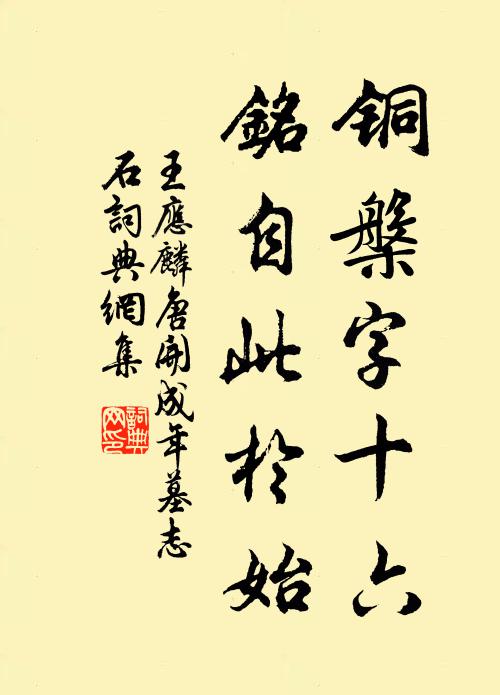 铜槃字十六
銘自此於始
王應麟唐開成年墓志
石詞典網集
詞典网印